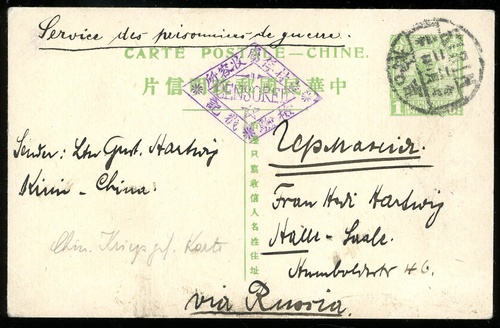 Service des prisonniers de guerre.
CARTE POSTALE—CHINE.
中華民國郵政明信片
CENSORED
KIRIN
1
Sender: Ltn Gust. Hartwig
Kirin - China
Chin. Kriegsgef. Karte
只寫收信人名姓住址
Германия.
Frau Hedi Hartwig
Halle - Saale.
Humboldtstr 46.
via Russia.